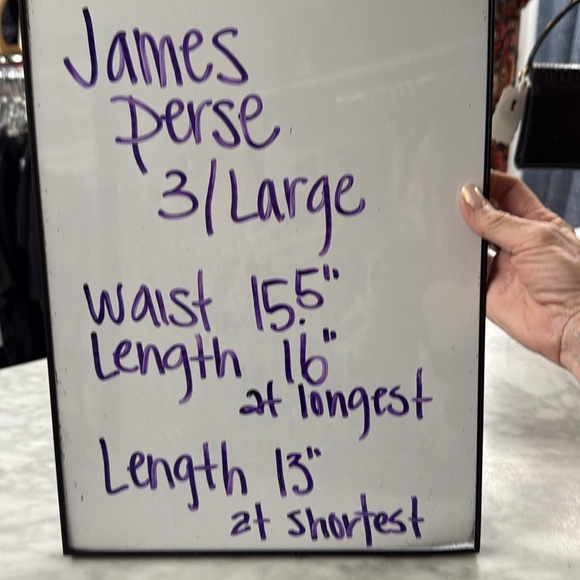 James
Perse
3/Large
Waist 15.5"
Length 16"
at longest
Length 13"
at shortest